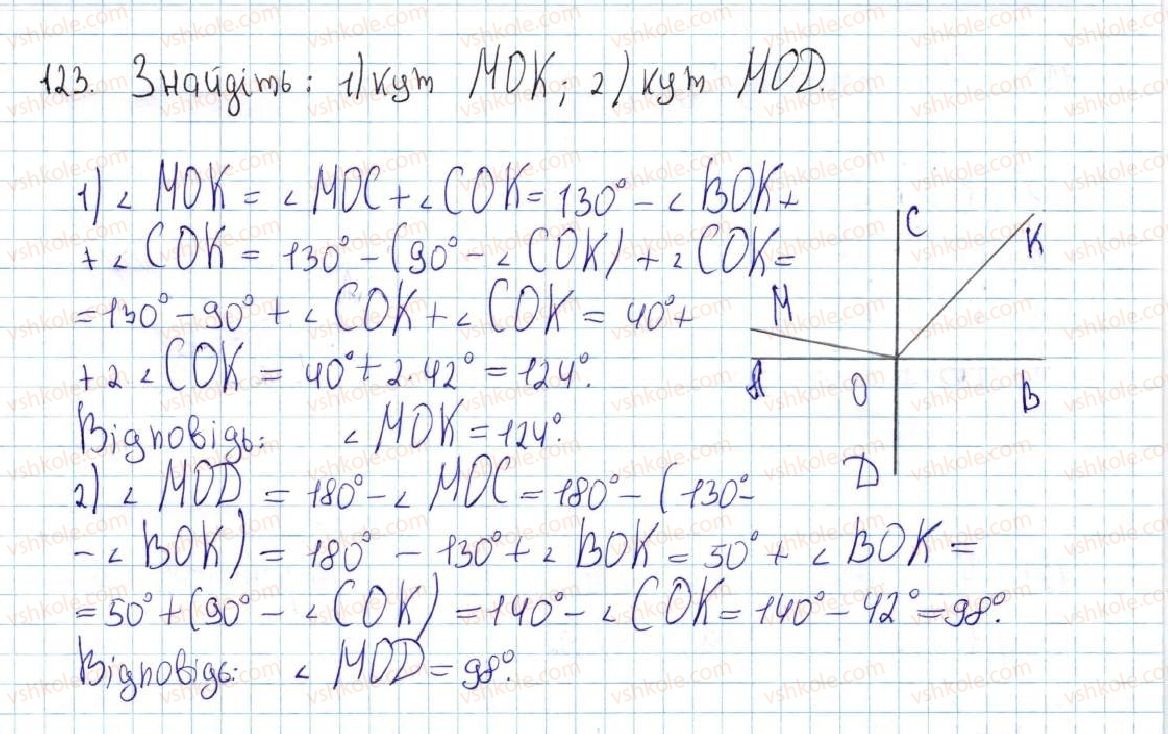 123. Знайдіть: 1) кут MOK; 2) кут MOD.
1) ∠ MOK = ∠ MOC + ∠ COK = 130° - ∠ BOK +
+ ∠ COK = 130° - (90° - ∠ COK) + ∠ COK =
= 130° - 90° + ∠ COK + ∠ COK = 40° +
+ 2 ∠ COK = 40° + 2 · 42° = 124°.
Відповідь: ∠ MOK = 124°.
2) ∠ MOD = 180° - ∠ MOC = 180° - (130° -
- ∠ BOK) = 180° - 130° + ∠ BOK = 50° + ∠ BOK =
= 50° + (90° - ∠ COK) = 140° - ∠ COK = 140° - 42° = 98°.
Відповідь: ∠ MOD = 98°.
C
K
M
A
O
B
D
vshkole.com